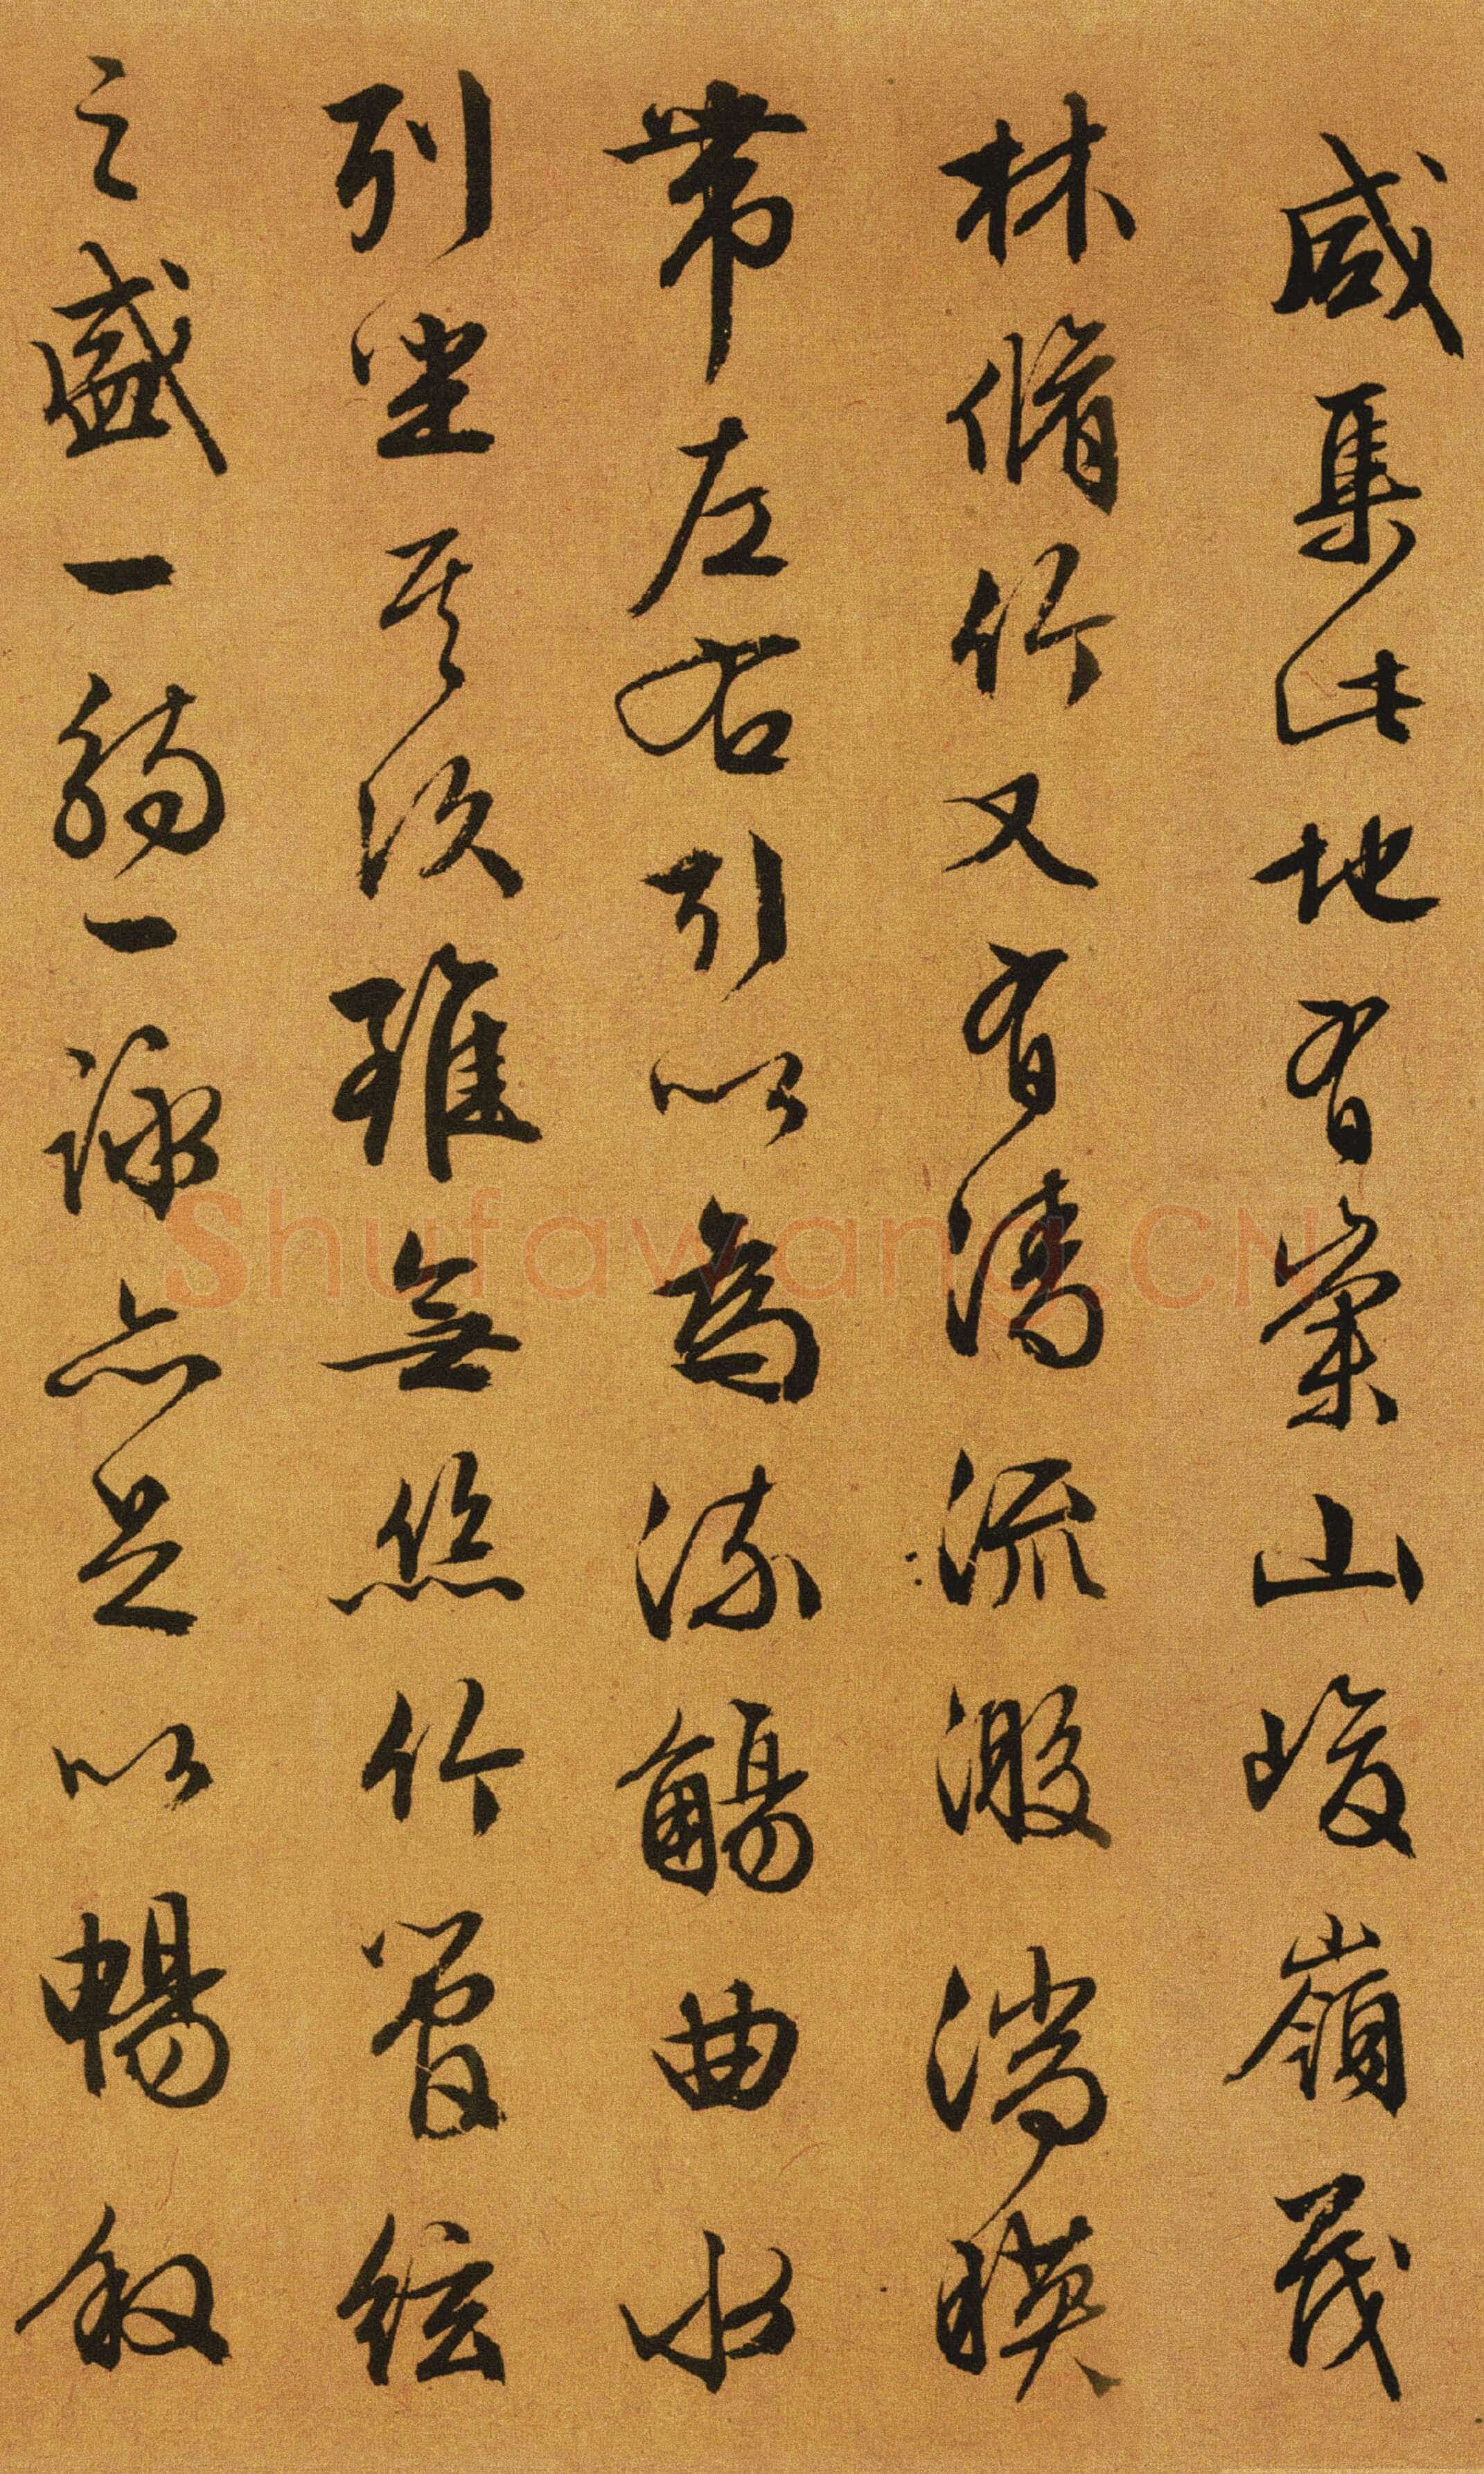 咸集此地有崇山峻嶺茂
林脩竹又有清流激湍暎
帶左右引以為流觴曲水
列坐其次雖無絲竹管絃
之盛一觴一詠亦足以暢敘
Shufawang.CN